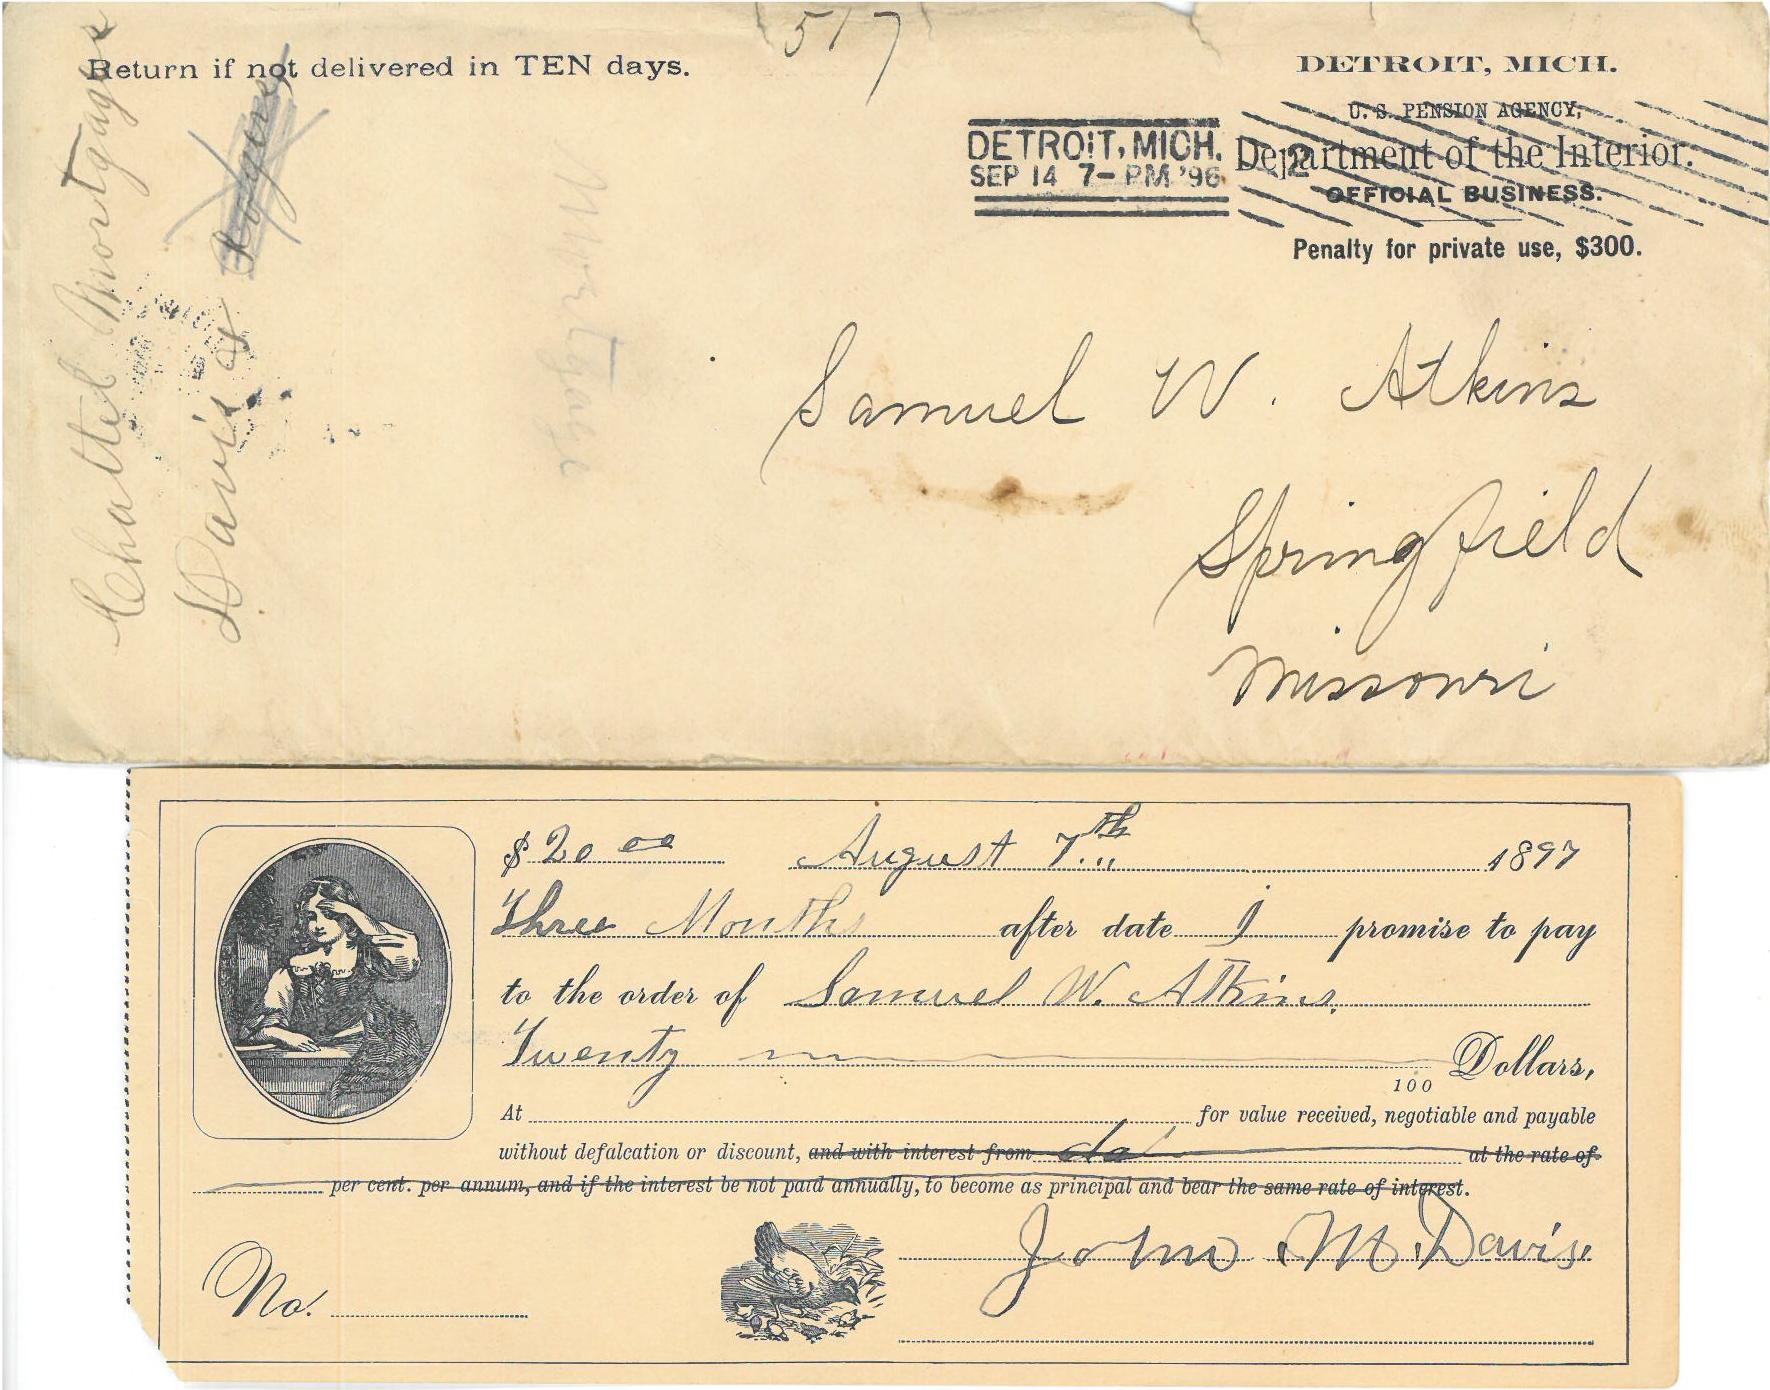 517
Return if not delivered in TEN days.
DETROIT, MICH.
U. S. PENSION AGENCY,
Department of the Interior.
OFFICIAL BUSINESS.
Penalty for private use, $300.
DETROIT, MICH. 2
SEP 14 7- PM '96
Chattel Mortgages
Davis & Rogers
Mortgage
Samuel W. Atkins
Springfield
Missouri
$ 20 00 August 7th 1897
Three Months after date I promise to pay
to the order of Samuel W. Atkins.
Twenty 100 Dollars,
At for value received, negotiable and payable
without defalcation or discount, and with interest from dat at the rate of
per cent. per annum, and if the interest be not paid annually, to become as principal and bear the same rate of interest.
John M. Davis.
No.